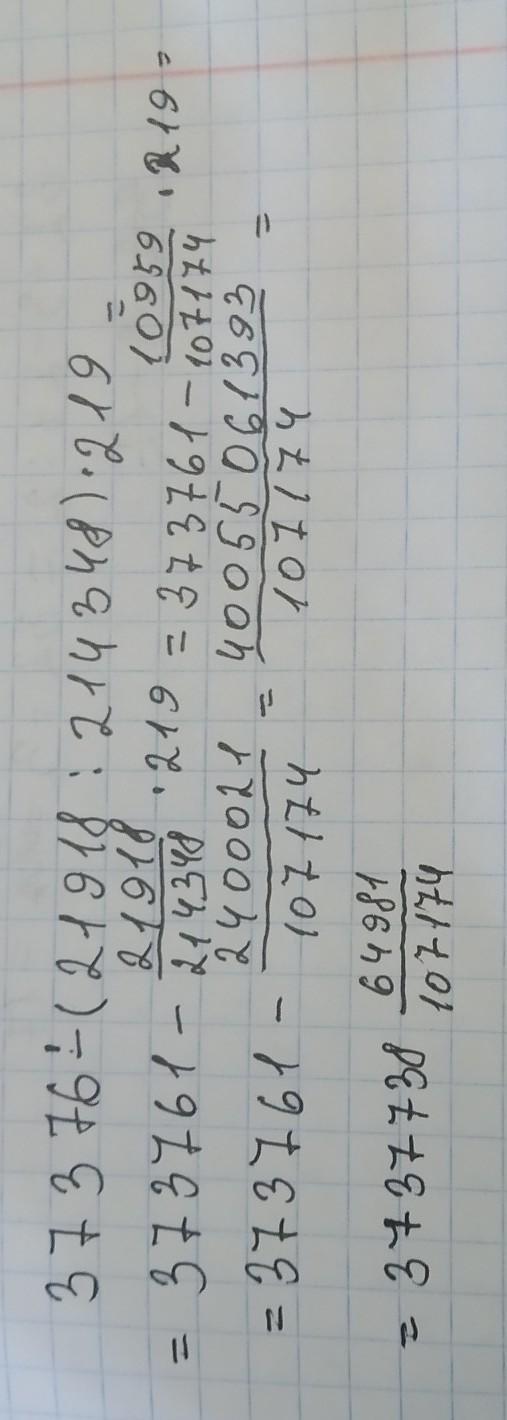 373761-(21918:214348)·219 =
= 373761 - 21918/214348 ·219 = 373761 - 10959/107174 ·219 =
= 373761 - 2400021/107174 = 40055061393/107174 =
= 3737738 64981/107174